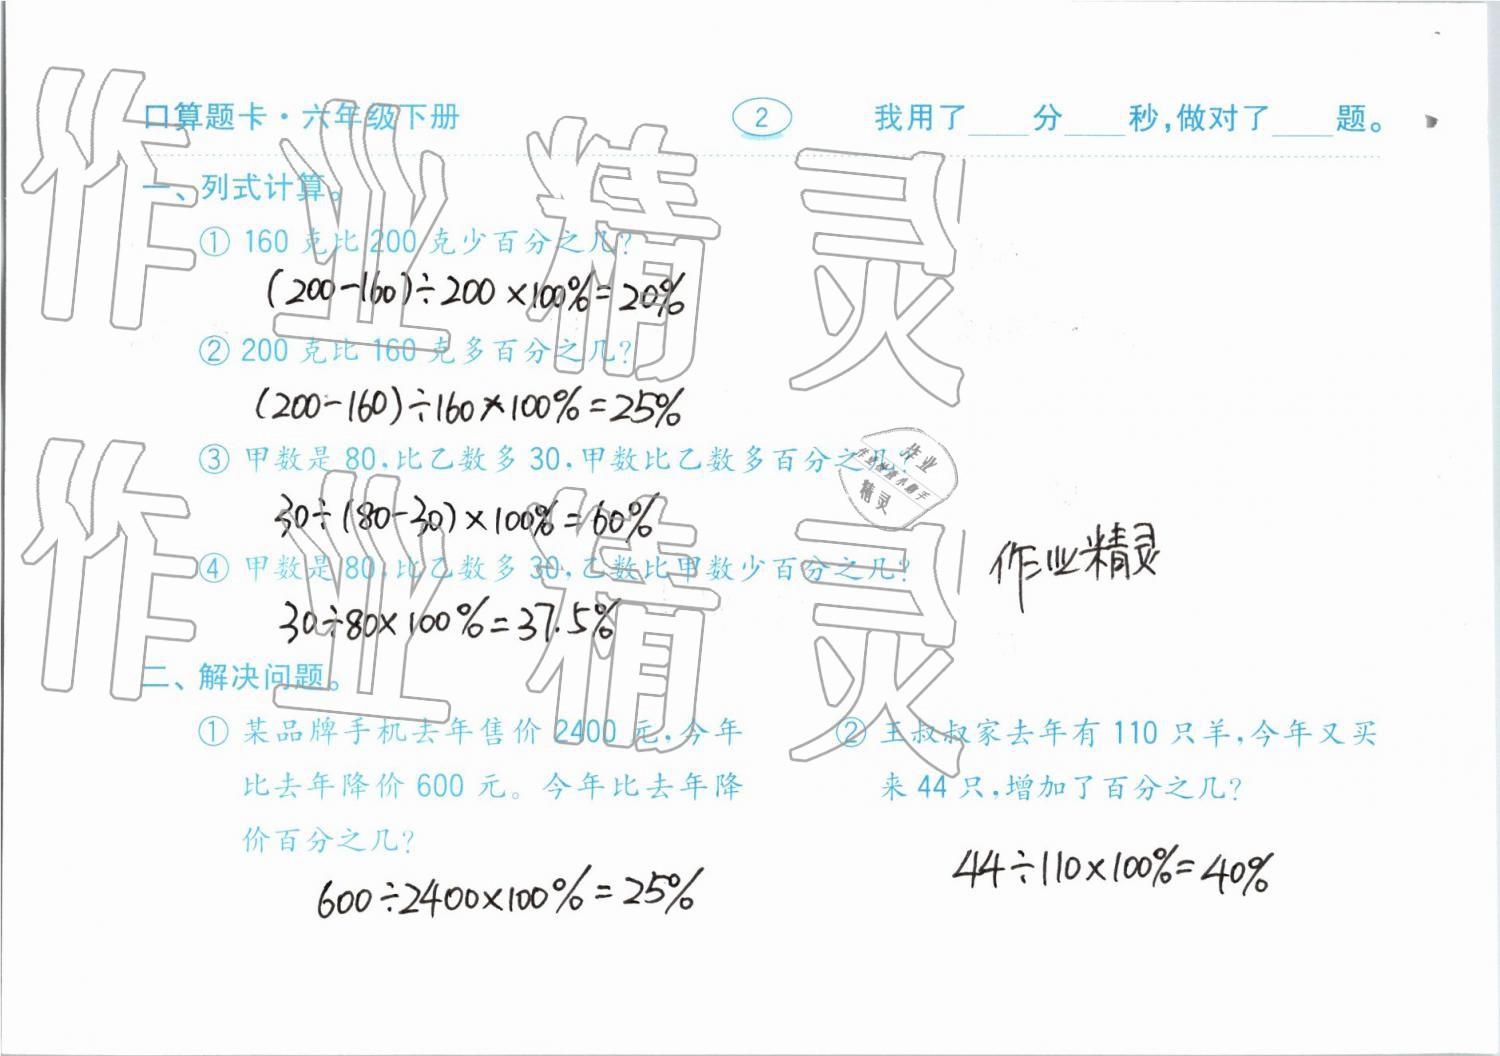 口算题卡·六年级下册 2 我用了____分____秒,做对了____题。
一、列式计算。
① 160 克比 200 克少百分之几?
(200-160)÷200×100%=20%
② 200 克比 160 克多百分之几?
(200-160)÷160×100%=25%
③ 甲数是 80,比乙数多 30,甲数比乙数多百分之几?
30÷(80-30)×100%=60%
④ 甲数是 80,比乙数多 30,乙数比甲数少百分之几?
30÷80×100%=37.5%
作业精灵
二、解决问题。
① 某品牌手机去年售价 2400 元,今年
比去年降价 600 元。今年比去年降
价百分之几?
600÷2400×100%=25%
② 王叔叔家去年有 110 只羊,今年又买
来 44 只,增加了百分之几?
44÷110×100%=40%
作业精灵
作业精灵
作业
精灵